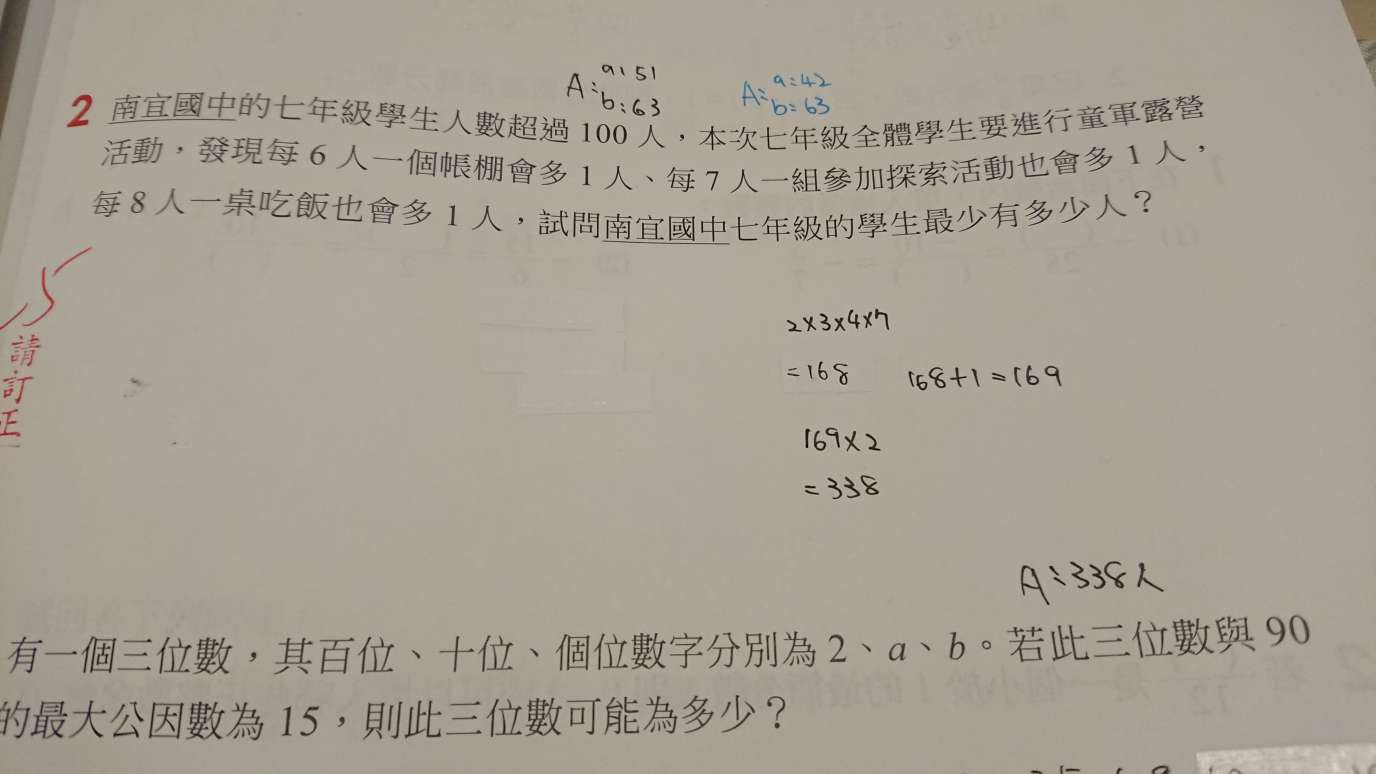 A:a:51
b:63
A:a:42
b:63
2 南宜國中的七年級學生人數超過 100 人，本次七年級全體學生要進行童軍露營
活動，發現每 6 人一個帳棚會多 1 人、每 7 人一組參加探索活動也會多 1 人，
每 8 人一桌吃飯也會多 1 人，試問南宜國中七年級的學生最少有多少人？
請訂正
2×3×4×7
=168 168+1=169
169×2
=338
A:338人
有一個三位數，其百位、十位、個位數字分別為 2、a、b。若此三位數與 90
的最大公因數為 15，則此三位數可能為多少？